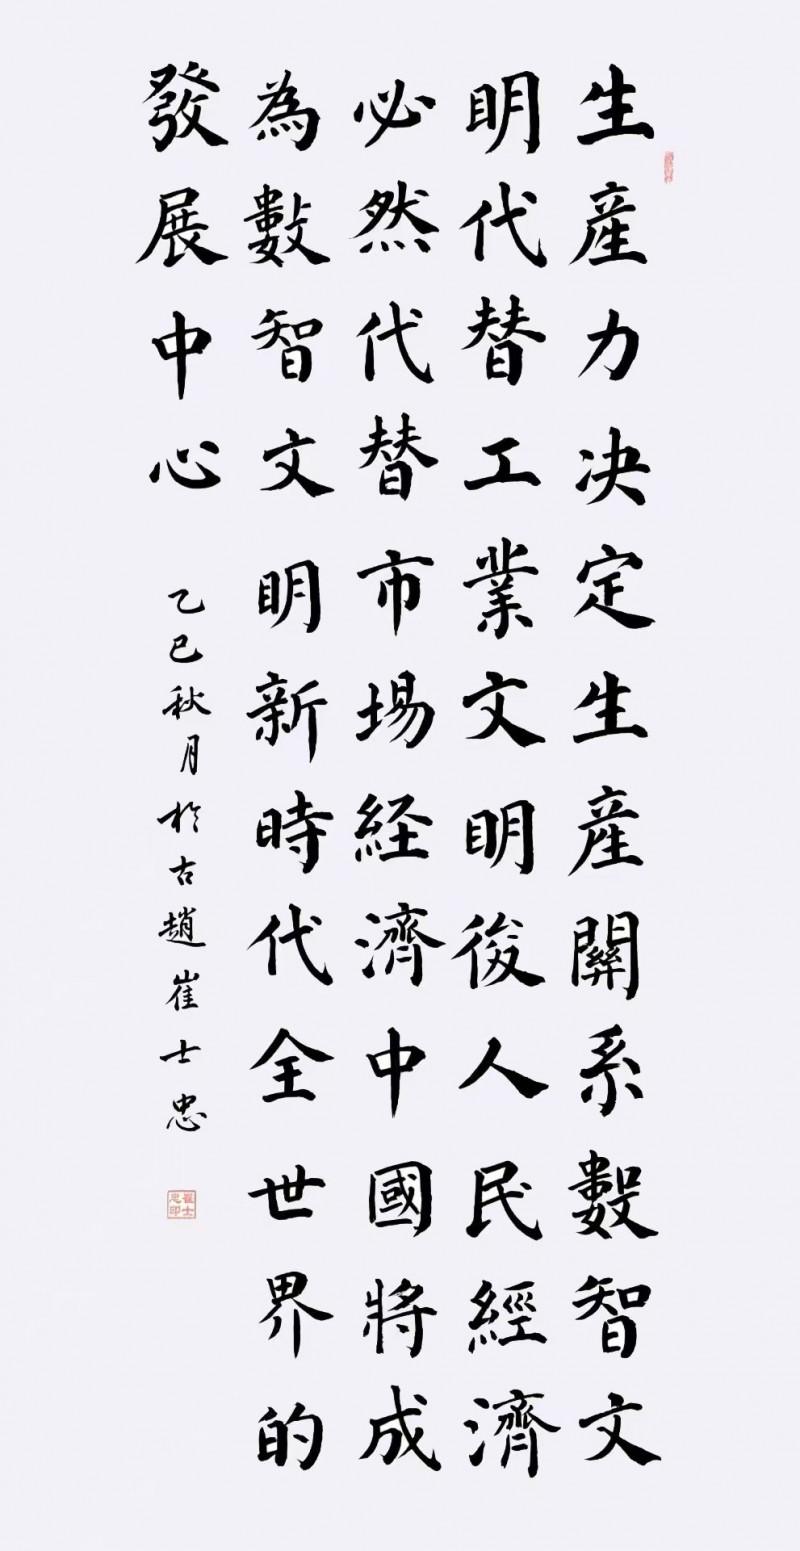 生產力决定生產關系數智文
明代替工業文明後人民經濟
必然代替市場经濟中國將成
為數智文明新時代全世界的
發展中心
乙巳秋月於古趙崔士忠
崔士忠印